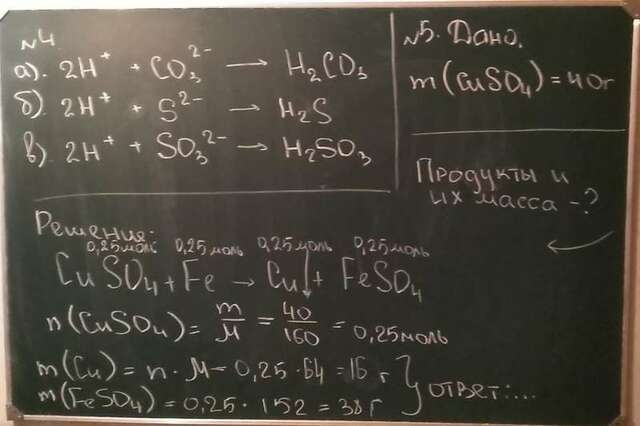 №4.
а). 2H⁺ + CO₃²⁻ → H₂CO₃
б). 2H⁺ + S²⁻ → H₂S
в). 2H⁺ + SO₃²⁻ → H₂SO₃
№5. Дано.
m(CuSO₄) = 40г
Продукты и
их масса -?
Решение:
0,25моль 0,25моль 0,25моль 0,25моль
CuSO₄ + Fe → Cu↓ + FeSO₄
n(CuSO₄) = m/M = 40/160 = 0,25моль
m(Cu) = n · M = 0,25 · 64 = 16 г
m(FeSO₄) = 0,25 · 152 = 38 г } ответ:...